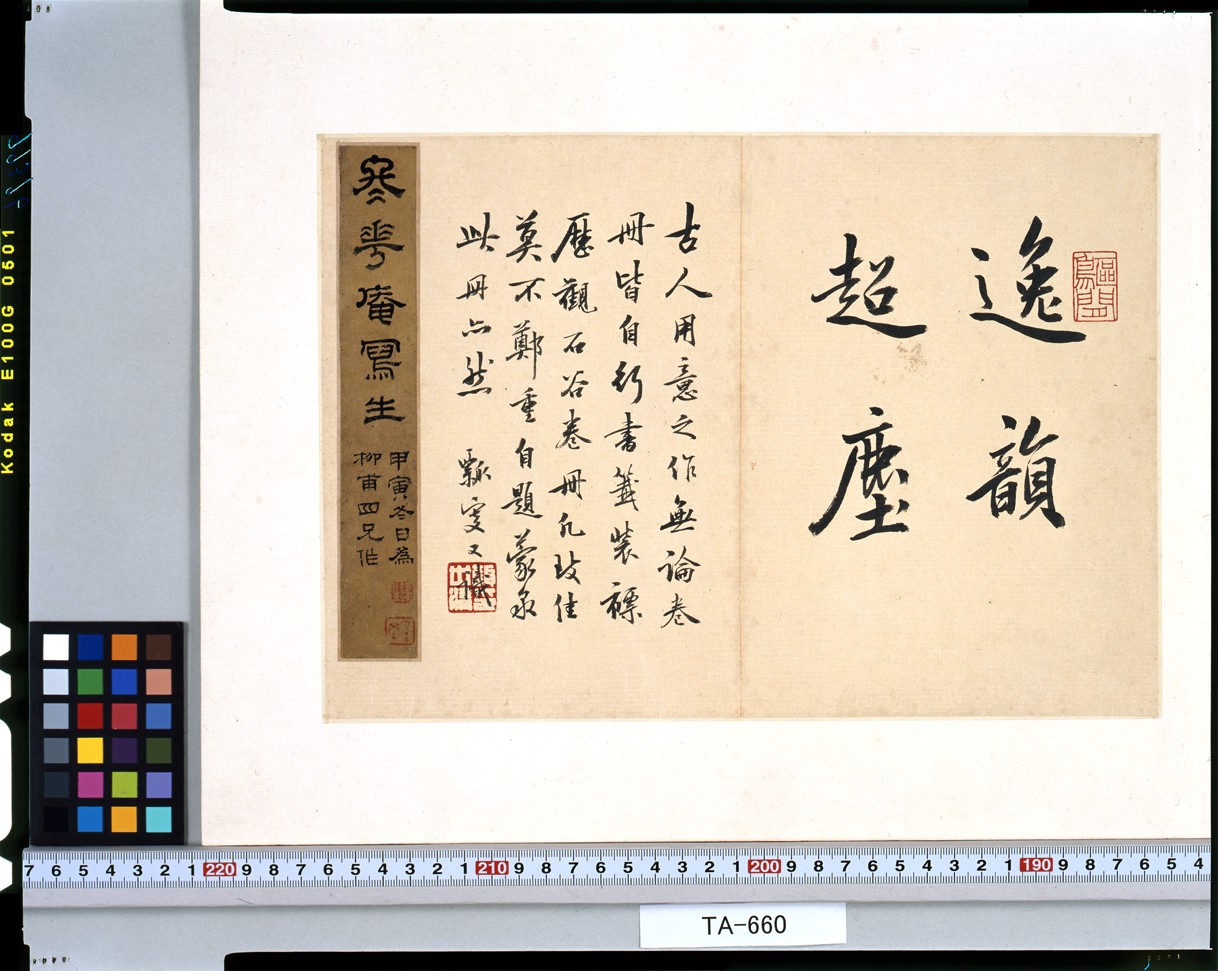 逸韻
超塵
古人用意之作無論卷
冊皆自行書籤裝褾
歷觀石谷卷冊凡玅佳
莫不鄭重自題蒙泉
此冊亦然
又
寫生
甲寅冬日為
柳甫四兄作
Kodak E100G 0501
7 6 5 4 3 2 1 220 9 8 7 6 5 4 3 2 1 210 9 8 7 6 5 4 3 2 1 200 9 8 7 6 5 4 3 2 1 190 9 8 7 6 5 4
TA-660